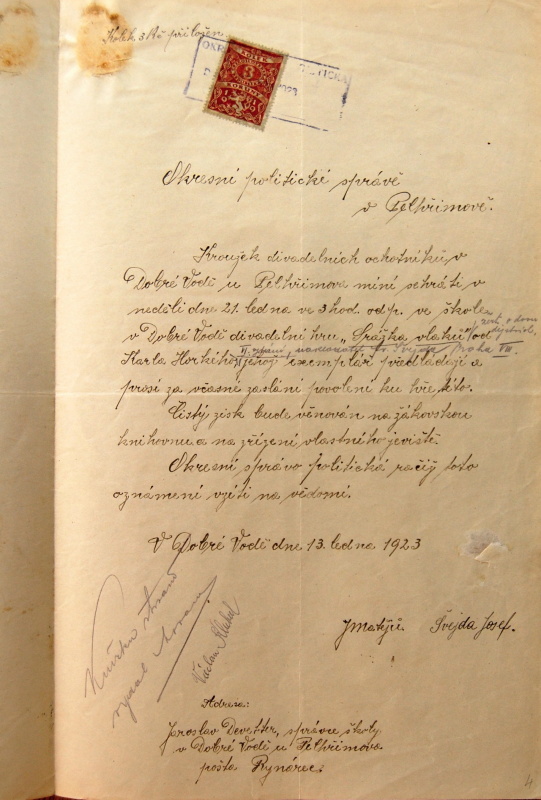 Kolek 3 Kč přiložen.
KOLEK
3
KORUNY
1919
Okresní politické správě
v Pelhřimově.
Kroužek divadelních ochotníků v
Dobré Vodě u Pelhřimova míní sehráti v
neděli dne 21. ledna ve 3 hod. odp. ve škole
v Dobré Vodě divadelní hru „Srážka vlaků" od
II. vydání, nakladatel Fr. Švejda Praha VII.
Karla Horkého, jejíž exemplář předkládají a
prosí za včasné zaslání povolení ku hře této.
Čistý zisk bude věnován na žákovskou
knihovnu a na zřízení vlastního jeviště.
Okresní správo politická račiž toto
oznámení vzíti na vědomí.
V Dobré Vodě dne 13. ledna 1923
JMatějů. Švejda Josef.
Václav
Adresa:
Jaroslav Devetter, správce školy
v Dobré Vodě u Pelhřimova
pošta Rynárec.
4